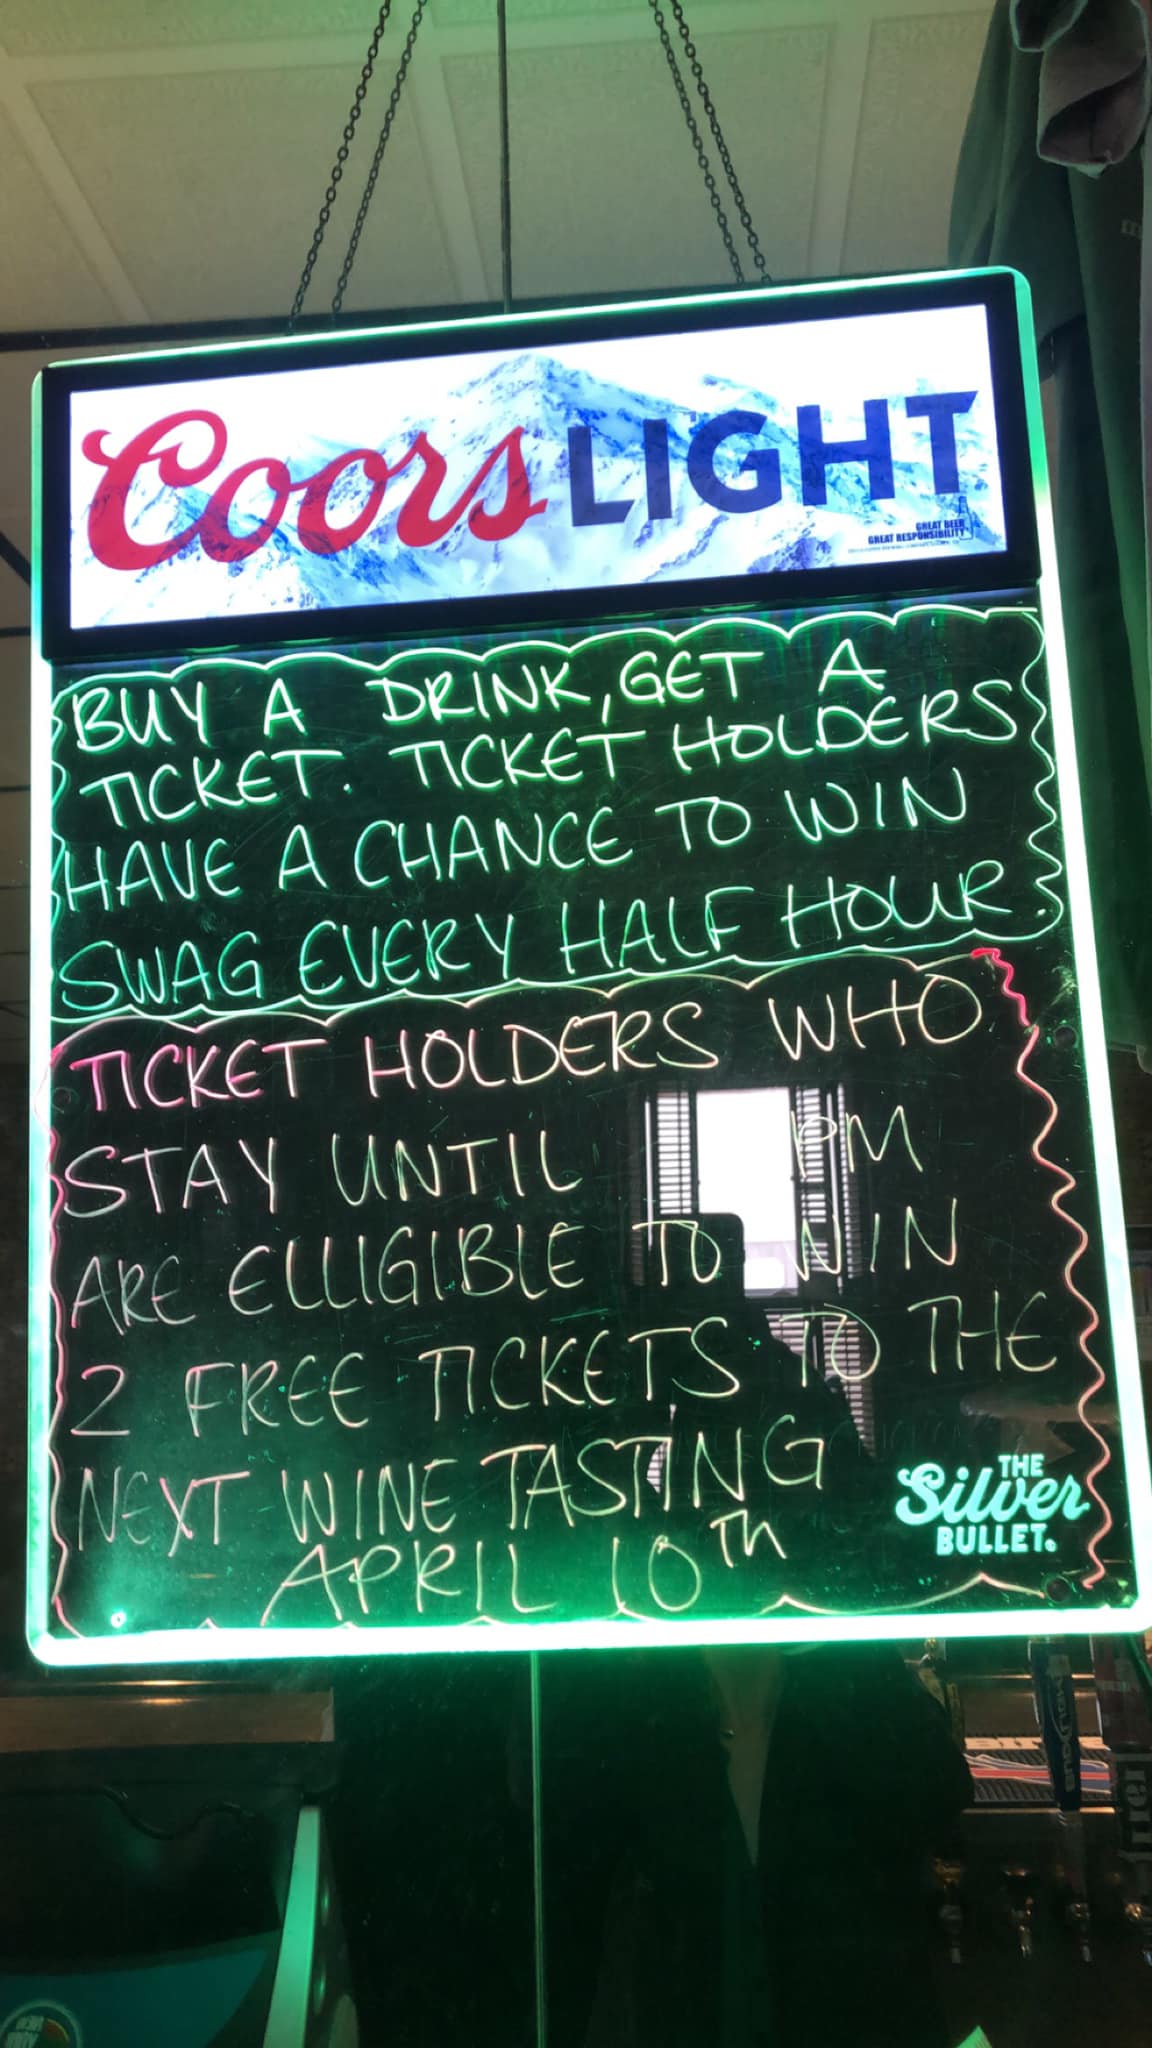 Coors LIGHT
GREAT BEER
GREAT RESPONSIBILITY
BUY A DRINK, GET A
TICKET. TICKET HOLDERS
HAVE A CHANCE TO WIN
SWAG EVERY HALF HOUR.
TICKET HOLDERS WHO
STAY UNTIL PM
ARE ELLIGIBLE TO WIN
2 FREE TICKETS TO THE
NEXT WINE TASTING
APRIL 10TH
THE
Silver
BULLET.